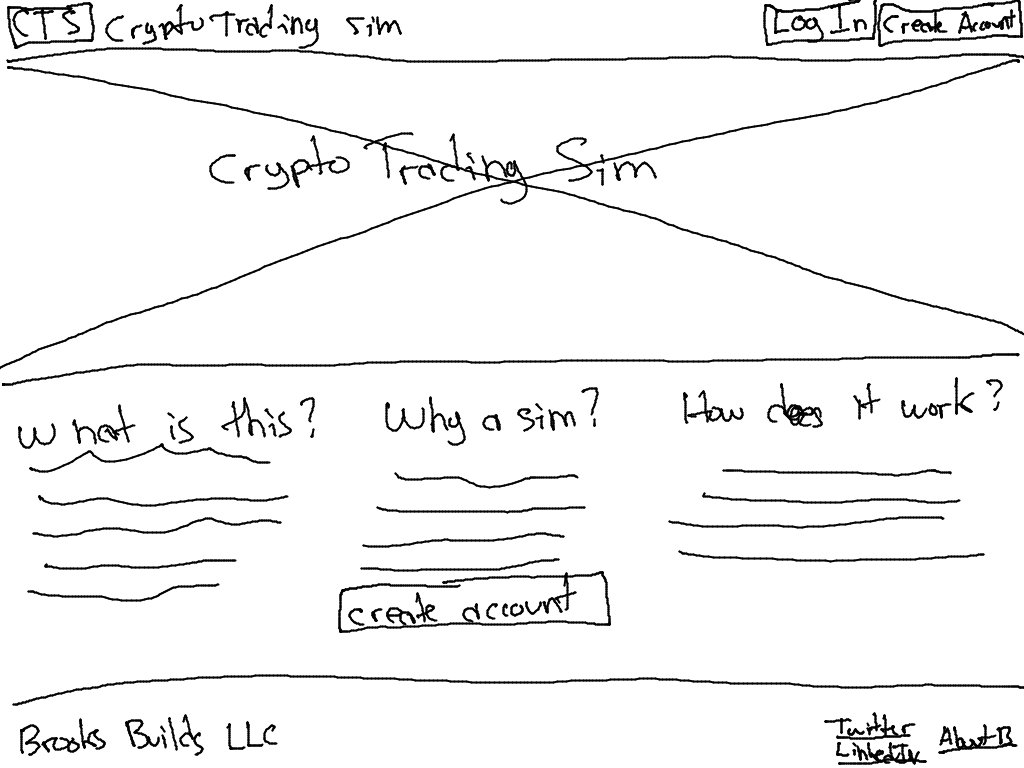 CTS Crypto Trading Sim Log In Create Account
Crypto Trading Sim
What is this? Why a sim? How does it work?
create account
Brooks Builds LLC Twitter About B
LinkedIn